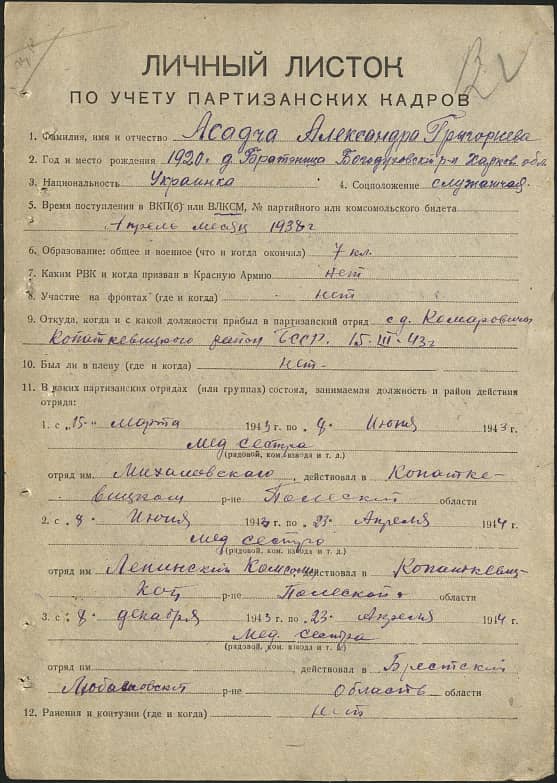 ЛИЧНЫЙ ЛИСТОК
ПО УЧЕТУ ПАРТИЗАНСКИХ КАДРОВ
1. Фамилия, имя и отчество Асадча Александра Григорьева
2. Год и место рождения 1920г д. Братеница Богодуховский р-н Харков. обл.
3. Национальность Украинка 4. Соцположение служащая
5. Время поступления в ВКП(б) или ВЛКСМ, № партийного или комсомольского билета
Апрель месяц 1938г
6. Образование: общее и военное (что и когда окончил) 7 кл.
7. Каким РВК и когда призван в Красную Армию нет
8. Участие на фронтах (где и когда) нет
9. Откуда, когда и с какой должности прибыл в партизанский отряд с д. Комаровичи
Копаткевицкого район БССР. 15-III-43г
10. Был ли в плену (где и когда) нет.
11. В каких партизанских отрядах (или группах) состоял, занимаемая должность и район действия
отряда:
1. с „15„ марта 1943 г. по „8„ Июня 1943 г.
мед сестра
(рядовой, ком. взвода и т. д.)
отряд им. Михаловского, действовал в Копатке-
вицком р-не Полеской области
2. с „8„ Июня 1943 г. по „23„ Апреля 1944 г.
мед сестра
(рядовой, ком. взвода и т. д.)
отряд им. Ленинский Комсом, действовал в Копаткевиц-
кой р-не Полеской области
3. с „8„ декабря 1943 г. по „23„ Апреля 1944 г.
мед. сестра
(рядовой, ком. взвода и т. д.)
отряд им. , действовал в Брестский
р-не Область области
12. Ранения и контузии (где и когда) нет